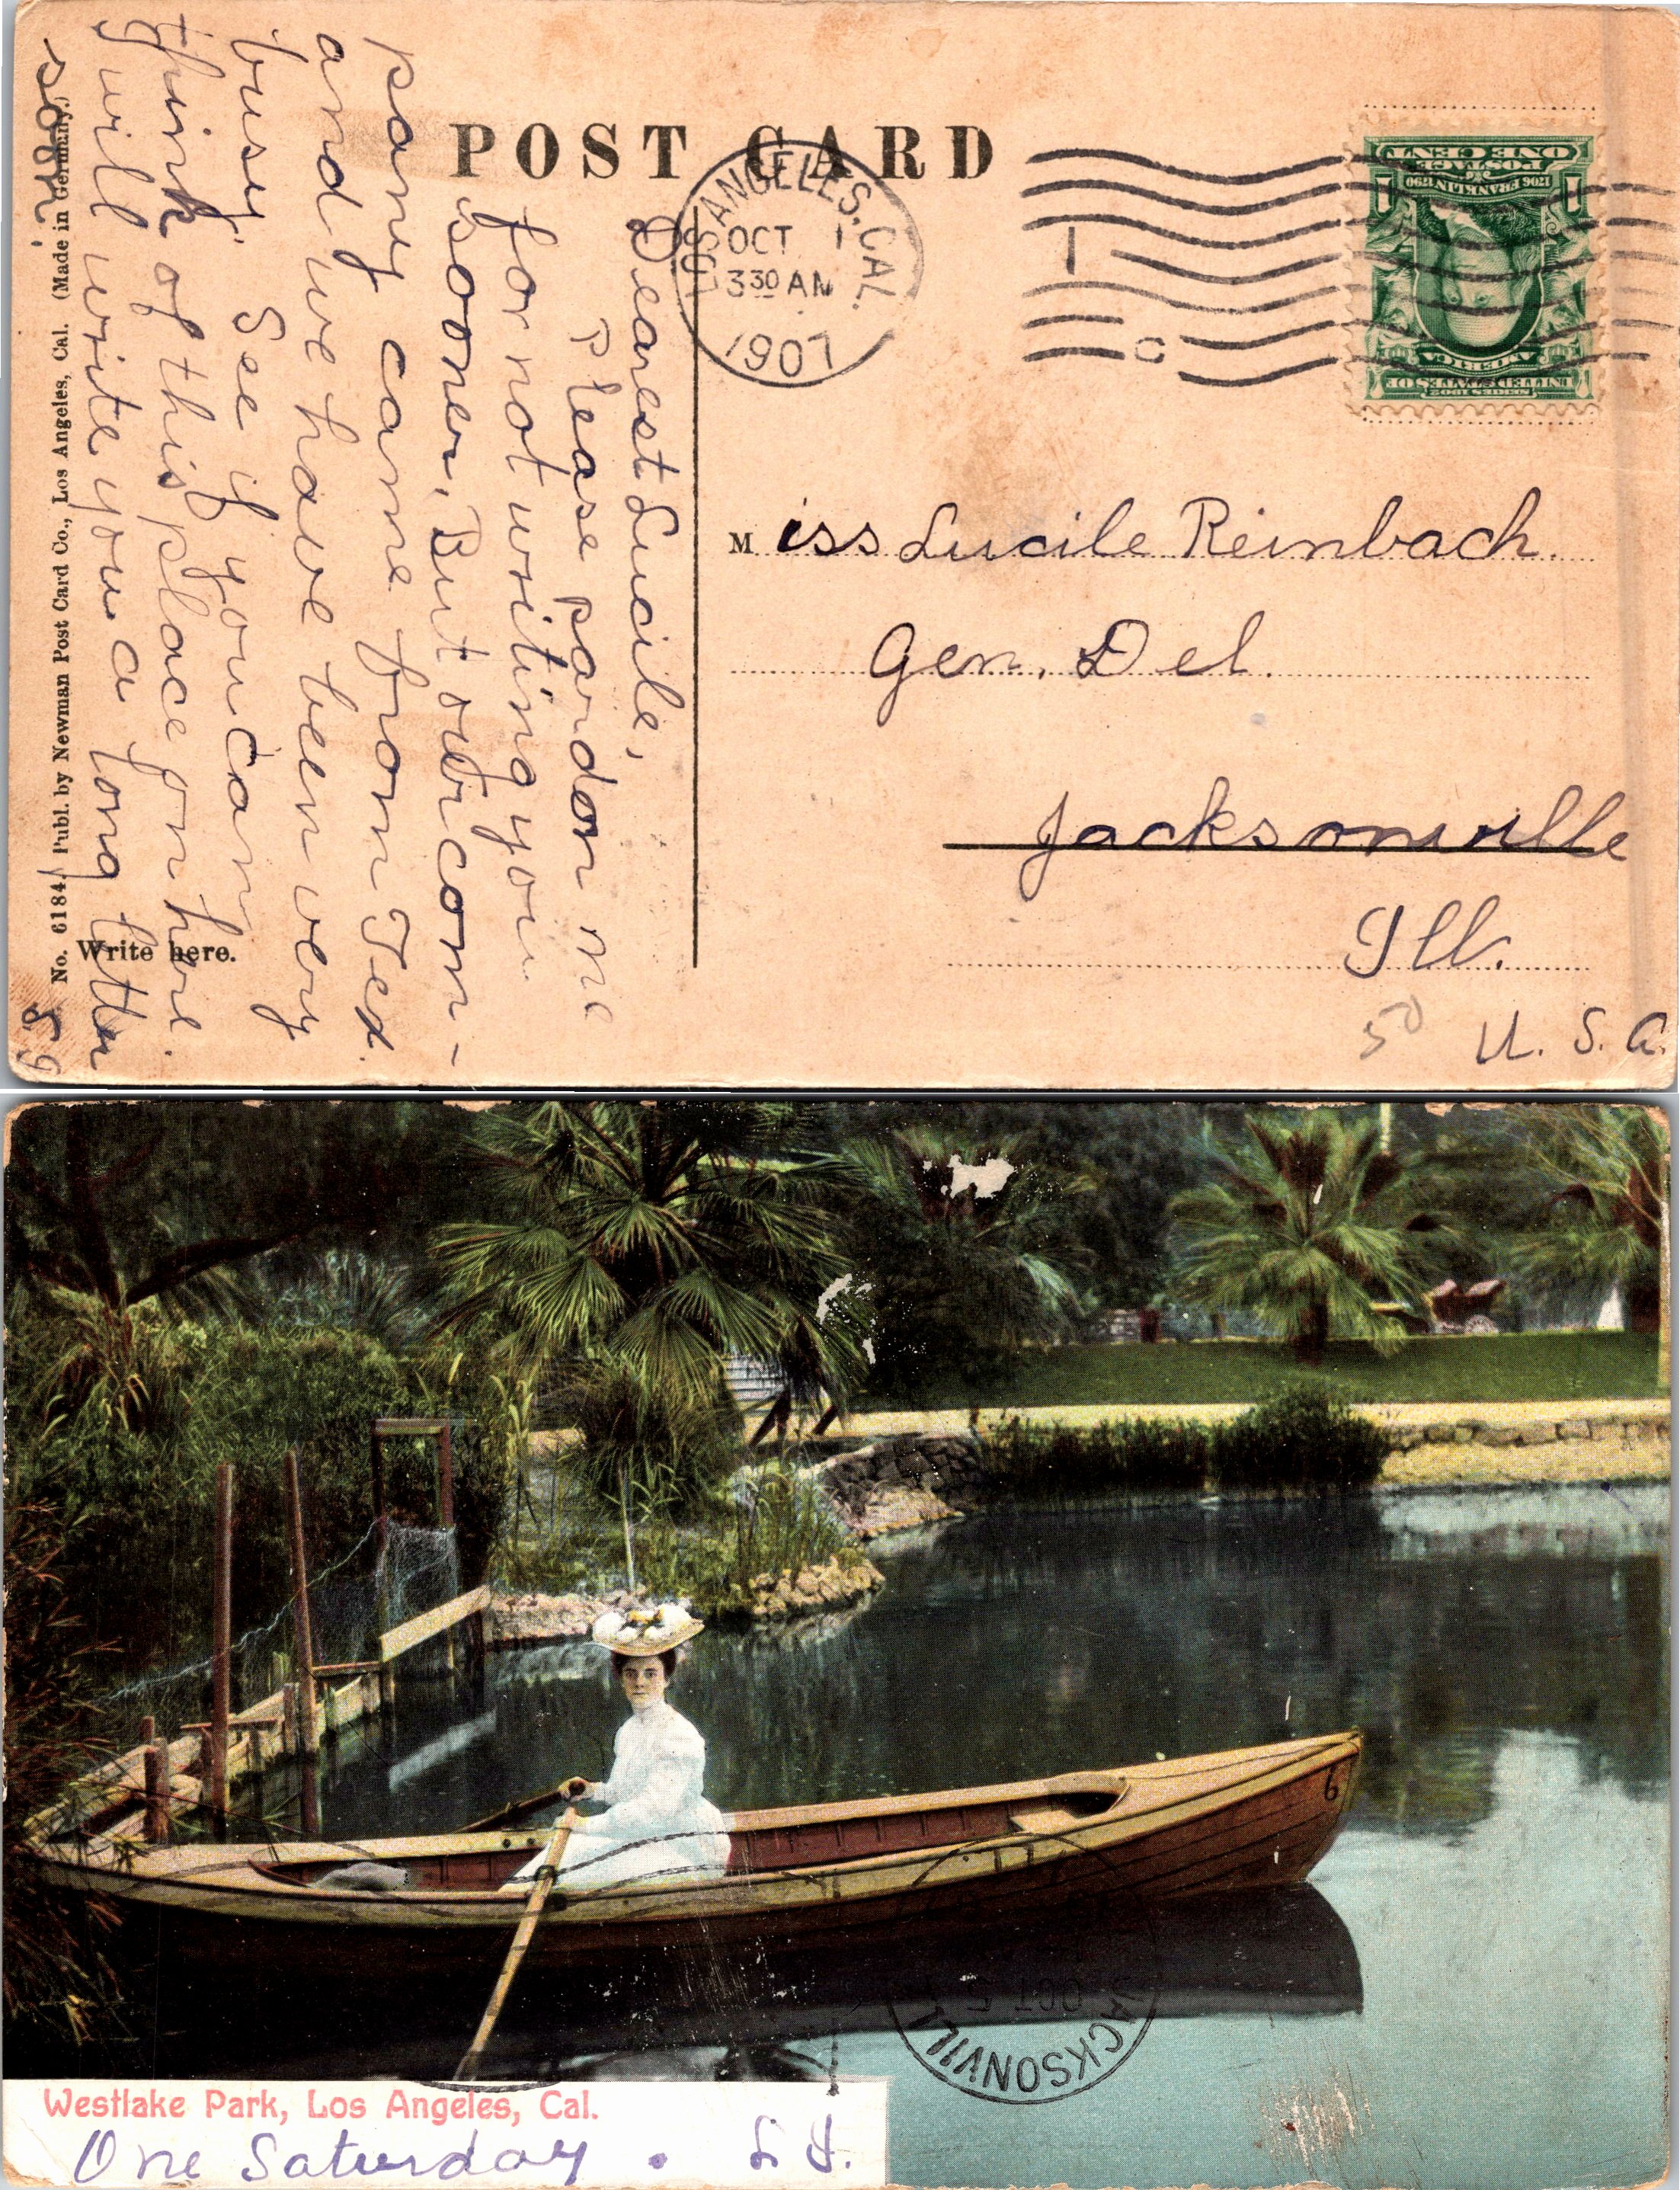 POST CARD
LOS ANGELES, CAL.
OCT 1
3 30 AM
1907
SERIES 1902
UNITED STATES OF
AMERICA
1706 FRANKLIN 1790
POSTAGE
1 1
ONE CENT
Miss Lucile Reinbach.
Gen. Del.
Jacksonville
Ill.
50
U. S. A.
Dearest Lucile,
Please pardon me
for not writing you
sooner, But our com-
pany came from Tex.
and we have been very
busy. See if you can
think of this place on here.
I will write you a long letter
soon.
No. 6184/ Publ. by Newman Post Card Co., Los Angeles, Cal. (Made in Germany.)
Write here.
6
JACKSONVILL
OCT 5
Westlake Park, Los Angeles, Cal.
One Saturday.